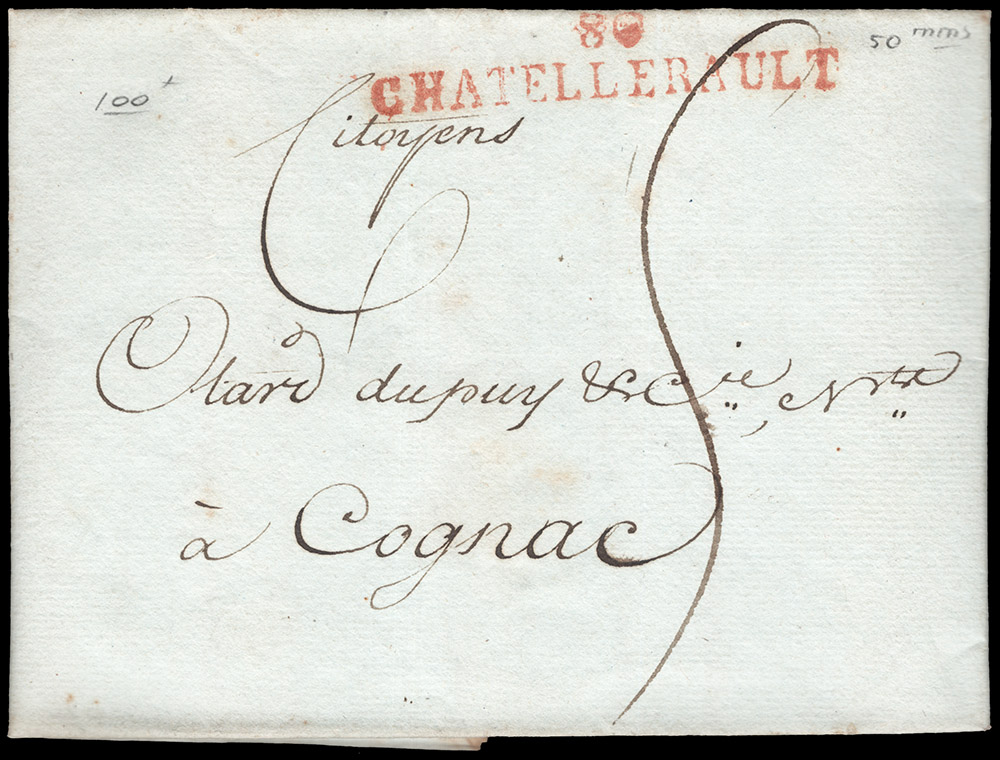 80
CHATELLERAULT
50 mms
100+
Citoyens
Otard dupuy & Cie, Nts
à Cognac
5